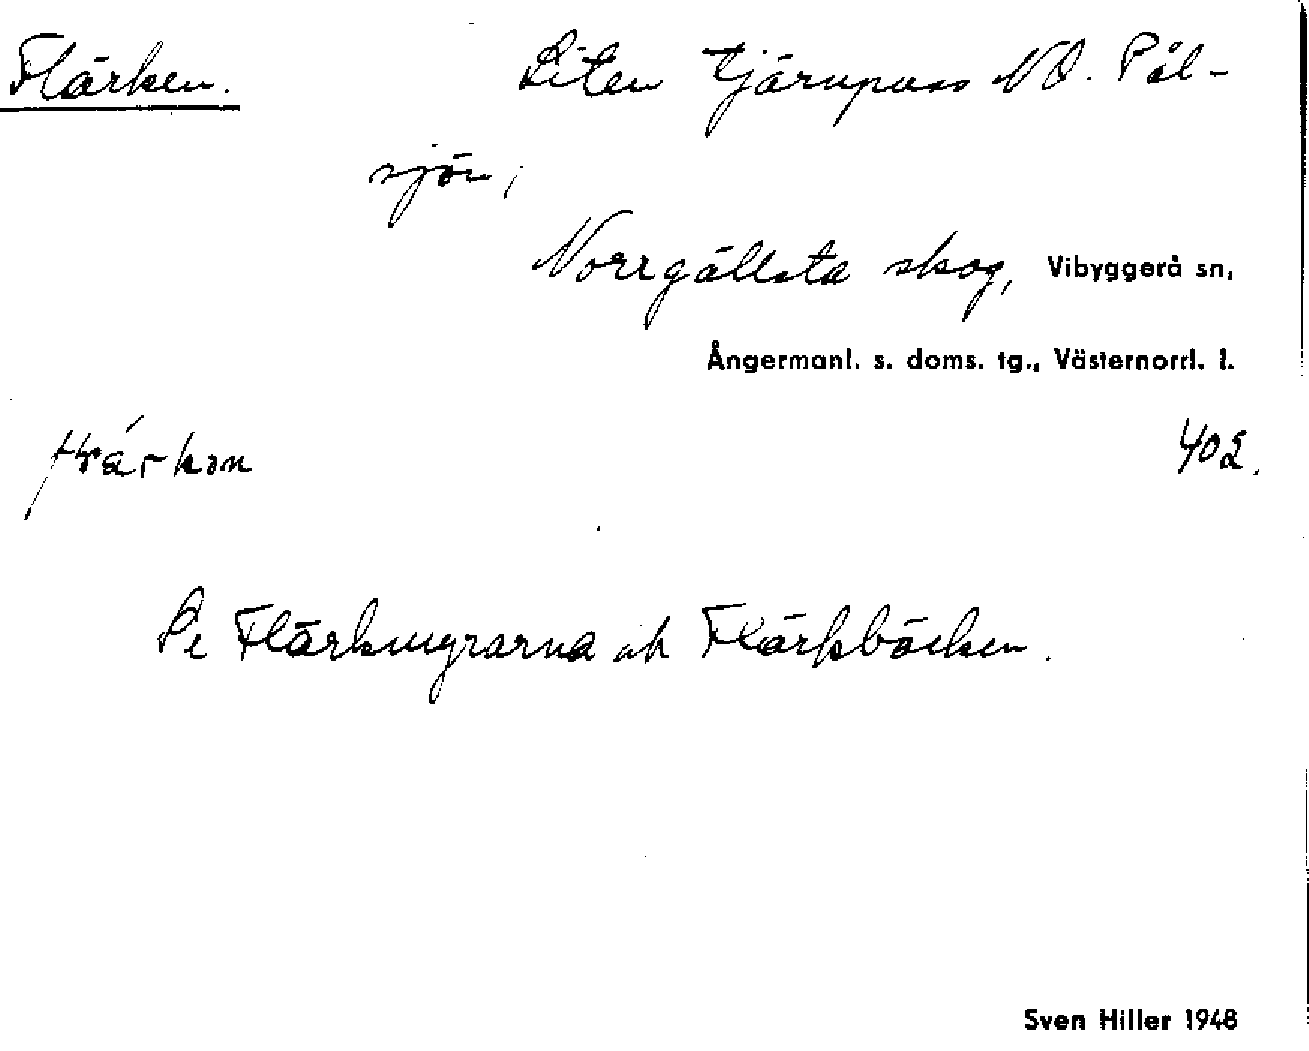 Flärken. Liten tjärnpuss NO. Pål-
sjön,
Norrgällsta skog, Vibyggerå sn,
Ångermanl. s. doms. tg., Västernorrl. l.
402.
Se Flärkmyrarna och Flärkbäcken.
Sven Hiller 1948